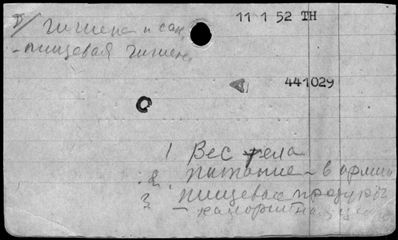 5/ гигиена и сан
11 1 52 TH
- пищевая гигиена
441029
1 Вес тела
2. питание - в армии
3 пищевая продукты
- калорийная